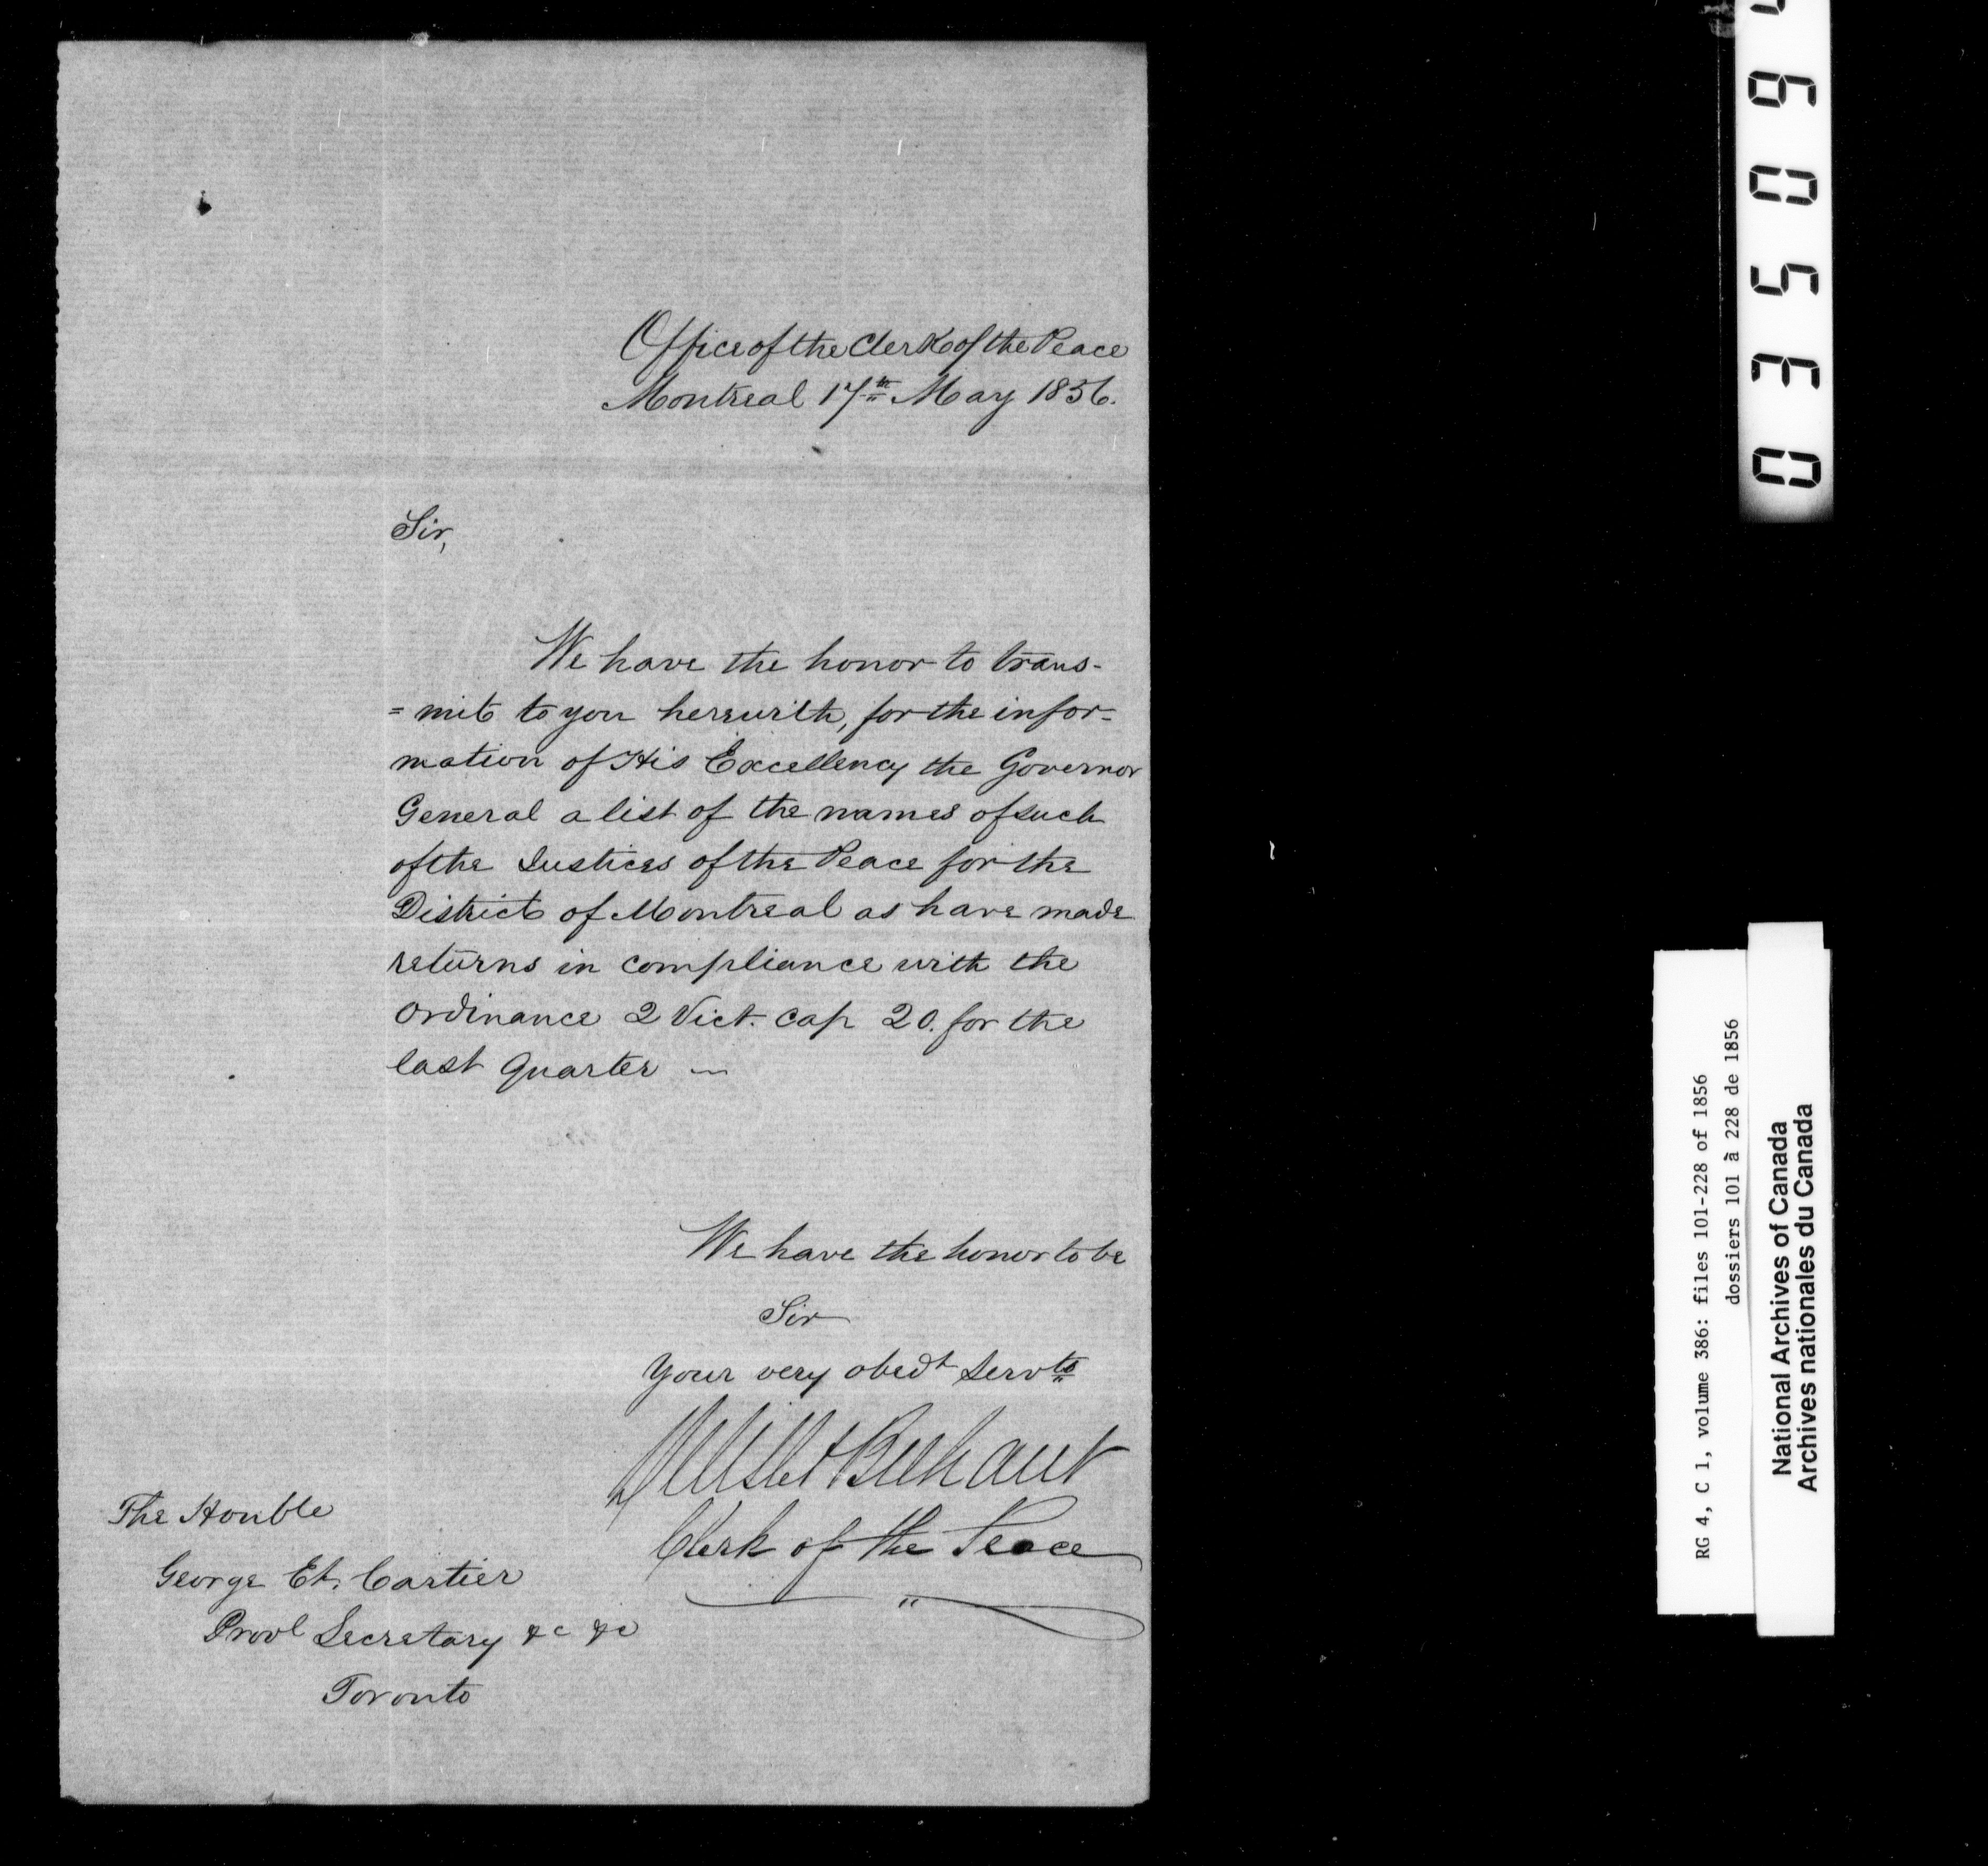 Office of the Clerk of the Peace
Montreal 17th May 1856.
Sir,
We have the honor to trans-
=mit to you herewith, for the infor-
mation of His Excellency the Governor
General a list of the names of such
of the Justices of the Peace for the
District of Montreal as have made
returns in compliance with the
Ordinance 2 Vict. Cap 20. for the
last Quarter —
We have the honor to be
Sir
Your very obedt Servts
Delisle & Brehaut
Clerk of the Peace
The Honble
George Et. Cartier
Provl Secretary &c &c
Toronto
03509
RG 4, C 1, volume 386: files 101-228 of 1856
dossiers 101 à 228 de 1856
National Archives of Canada
Archives nationales du Canada